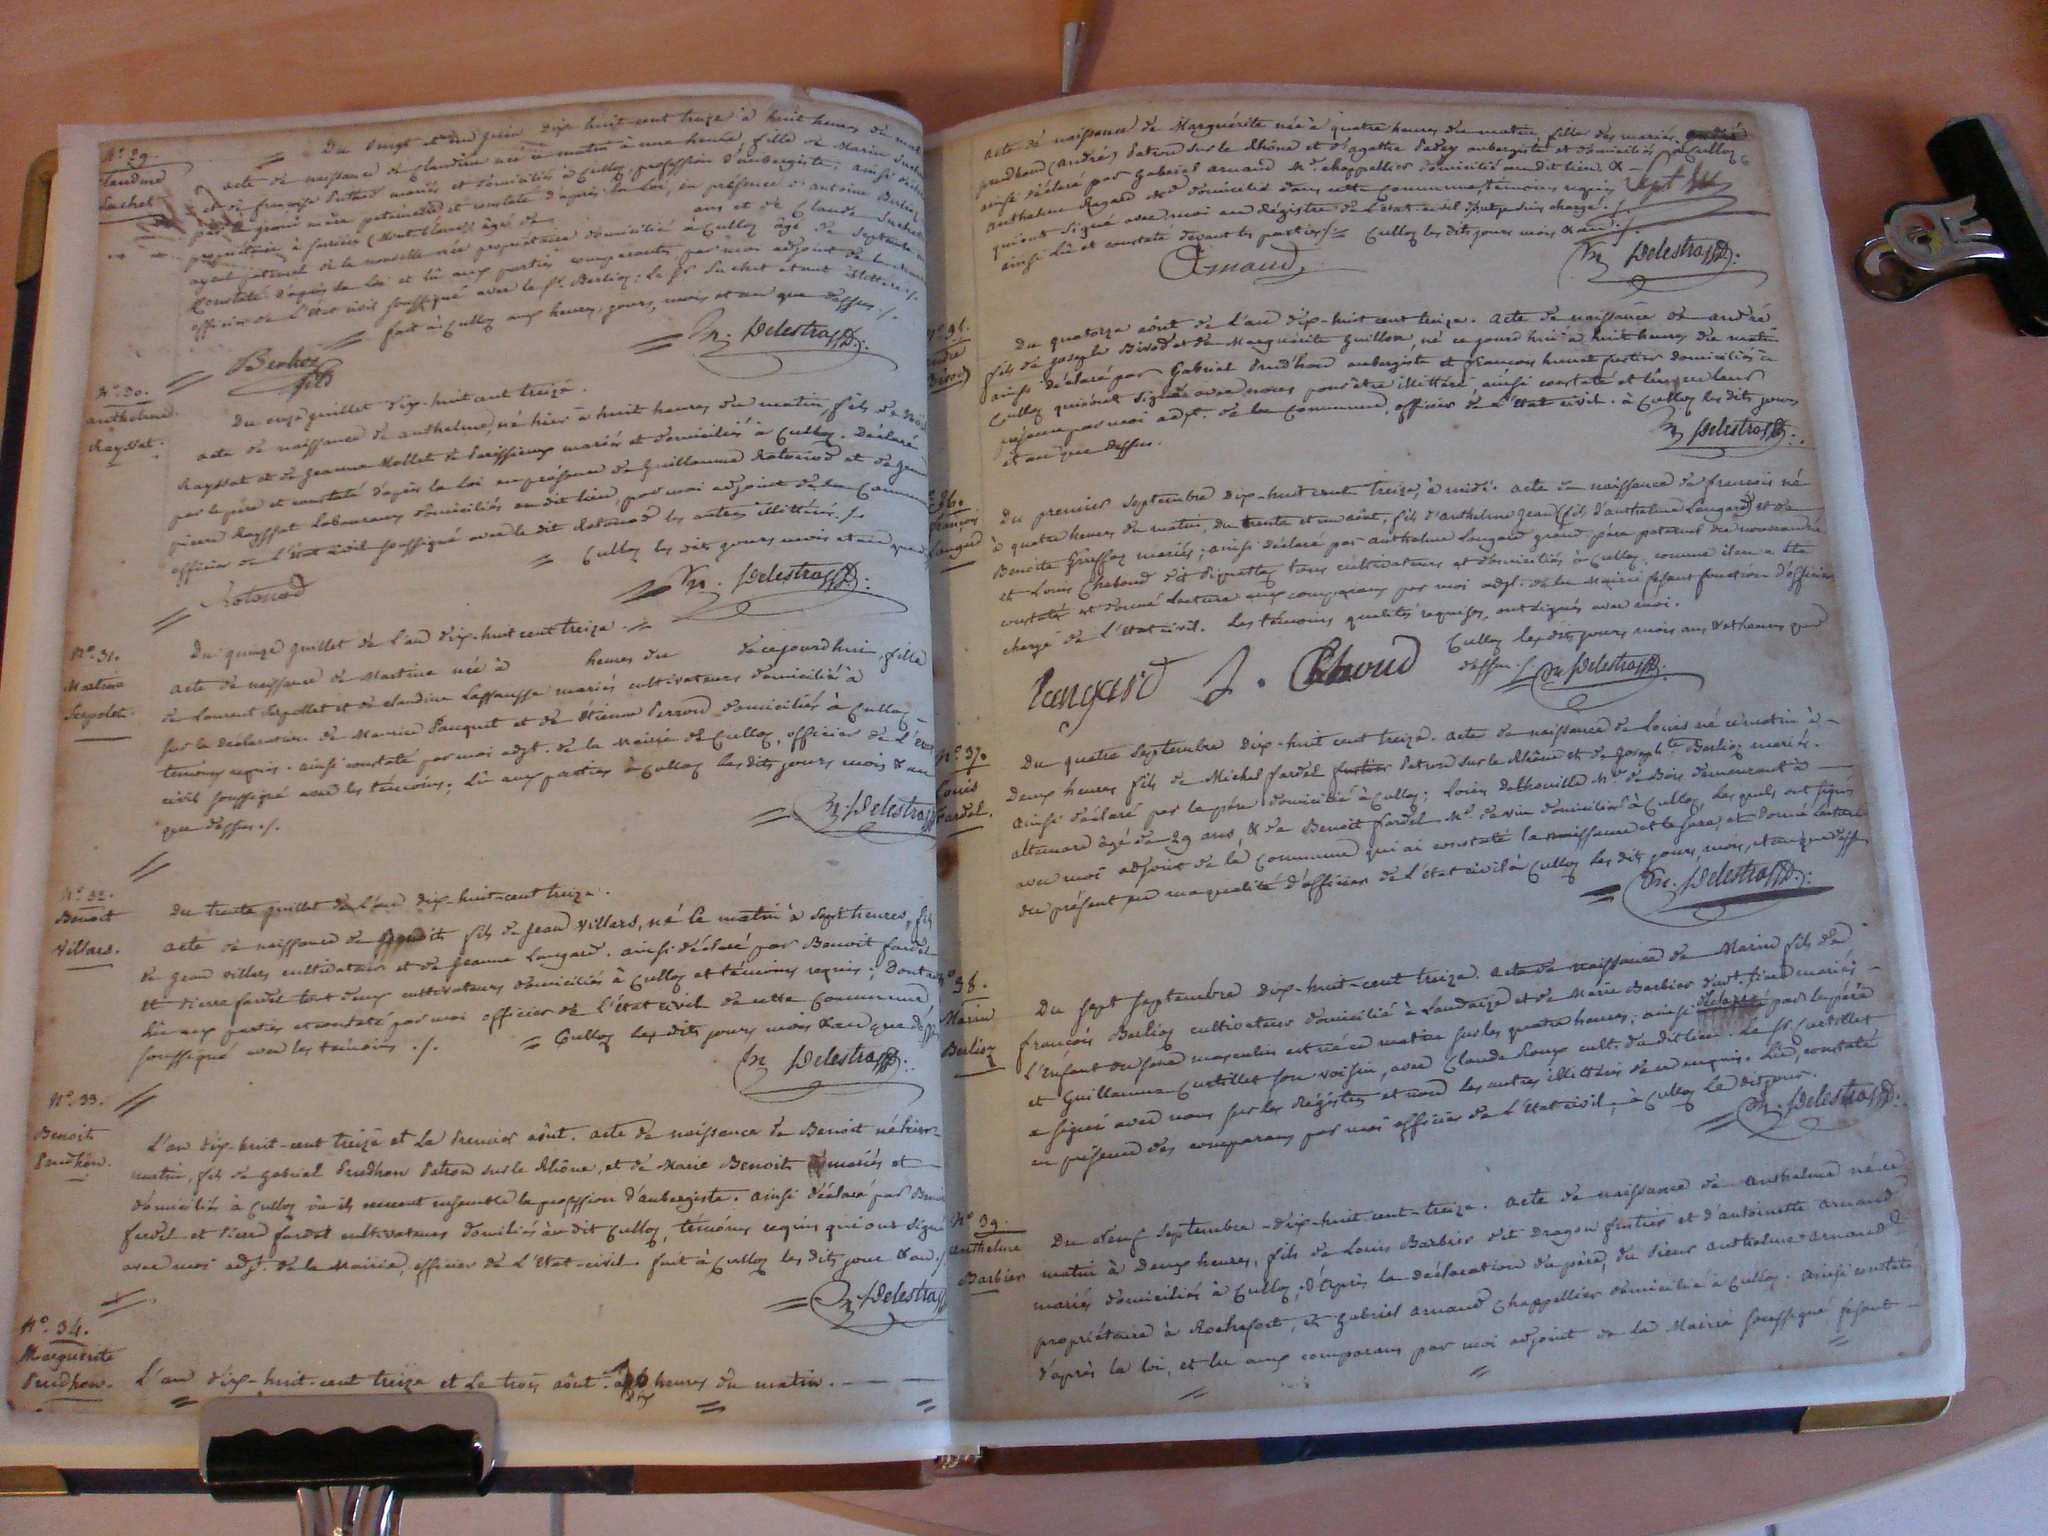 N.° 29.
Claudine
Suchet
Du vingt et un juin dix-huit-cent treize à huit heures du
acte de naissance de Claudine née ce matin à une heure fille de Marin Suchet
et de françoise mariés et domiciliés à Culloz profession d'aubergiste, ainsi
par la grand mère paternelle et constaté d'après la Loi, en présence d'antoine Berlioz
propriétaire à âgé de ans et de Claude Suchet
ayeul paternel de la nouvelle née propriétaire domicilié à Culloz âgé de
constaté d'après la Loi et lu aux parties comparants par moi adjoint de la
officier de L'état civil soussigné avec le Sr. Berlioz; Le Sr Suchet étant illitéré ./.
fait à Culloz aux heures, jours, mois et an que dessus ./.
Berlioz
fils
N.° 30.
anthelme
Rayssat.
Du onze juillet dix-huit cent treize.
acte de naissance de anthelme, né hier à huit heures du matin, fils de
Rayssat et de Jeanne Mollet de mariés et domiciliés à Culloz. Déclaré
par le père et constaté d'après la Loi en présence de Guillaume Rotonod et de
pierre Rayssat Laboureurs domiciliés en dit lieu, par moi adjoint de la Commune
officier de L'état civil soussigné avec le dit Rotonod les autres illittérés ./.
Culloz les dits jours mois et an que
Rotonod
N.° 31.
Martine
Serpolet.
Du quinze juillet de L'an dix-huit cent treize.
acte de naissance de Martine née à heures du de cejourdhui, fille
de Laurent Serpollet et de claudine Lassausse mariés cultivateurs domiciliés à
sur la déclaration de Maurice Pauquet et de Etienne Perroud domiciliés à Culloz
temoins requis. ainsi constaté par moi adjt. de la Mairie de Culloz, officier de L'état
civil soussigné avec les témoins; Lu aux parties à Culloz les dits jours mois & an
que dessus ./.
N.° 32.
Benoit
Villars.
Du trente juillet de L'an dix-huit-cent treize.
acte de naissance de Benoit fils de Jean Villars, né le matin à sept heures, fils
de Jean Villars cultivateur et de Jeanne Longard. ainsi déclaré par Benoit fardel
et Pierre fardel tout deux cultivateurs domiciliés à Culloz et témoins requis; Dont acte
lu aux parties et constaté par moi officier de L'état civil de cette Commune
soussigné avec les témoins ./. Culloz les dits jours mois & an que dessus
N.° 33.
Benoit
Prudhon.
L'an dix-huit-cent treize et le Premier aôut. acte de naissance de Benoit né hier
matin, fils de gabriel Prudhon Patron sur le Rhône, et de Marie Benoit mariés et
domiciliés à Culloz où ils exercent ensemble la profession d'aubergiste. ainsi déclaré par Benoit
fardel et Pierre fardel cultivateurs domiciliés au dit Culloz, témoins requis qui ont signé
avec moi adjt. de la Mairie, officier de L'Etat-civil. fait à Culloz les dits jour & an ./.
N.° 34.
Marguerite
Prudhon.
L'an dix-huit-cent treize et Le trois aôut à heures du matin.
acte de naissance de Marguérite née à quatre heures du matin, fille des mariés
prudhon (andré) Patron sur le Rhône et d'agathe Padey aubergiste et domiciliés à Culloz
ainsi déclaré par gabriel arnaud Md. chappellier domicilié au dit lieu &
anthelme Regard domicilié dans cette Commune, témoins requis
qui ont signé avec moi au Régistre de L'état civil chargé ./.
ainsi Lu et constaté devant les parties ./. Culloz les dits jours mois & an ./.
Arnaud
N.° 35.
andré
Du quatorze aôut de L'an dix-huit cent treize. acte de naissance de andré
fils de joseph et de Marguerite Guillon, né ce jourd'hui à huit heures du matin
ainsi déclaré par Gabriel Prudhon aubergiste et françois domiciliés à
Culloz qui n'ont signé avec nous pour être illittéré, ainsi constaté et lu
par moi adjt. de la Commune, officier de L'état civil. à Culloz les dits jours
et an que dessus.
36.
françois
Longard
Du premier septembre dix-huit cent treize, à midi. acte de naissance de francois né
à quatre heures du matin, du trente et un aôut, fils d'anthelme Jean (fils d'anthelme Longard) et de
Benoite mariés; ainsi déclaré par anthelme Longard grand père paternel du nouveau né
et Louis Chaboud dit tous cultivateurs et domiciliés à Culloz. comme il en a été
constaté et donné Lecture aux comparans par moi adjt. de la Mairie fesant fonction d'officier
chargé de L'Etat civil. Les témoins qualités requises, ont signés avec moi.
Culloz les dits jours mois an & heures que
dessus ./.
Longard
N.° 37.
Louis
Fardel.
Du quatre septembre dix-huit cent treize. acte de naissance de Louis né ce matin à
deux heures fils de Michel fardel Patron sur le Rhône et de Josephte Berlioz mariés.
ainsi déclaré par le père domicilié à Culloz; Louis Md. de Bois demeurant à
âgé de 29 ans, & de Benoit fardel Md. de vin domicilié à Culloz, Lesquels ont signés
avec moi adjoint de la Commune qui ai constaté la naissance et le sexe, et donné Lecture
du présent en ma qualité d'officier de L'état civil à Culloz les dits jours, mois, et an que dessus
38.
Marin
Berlioz
Du sept septembre dix-huit-cent treize. acte de naissance de Marin fils de
françois Berlioz cultivateur domicilié à Landaize et de Marie Barbier mariés
L'Enfant du sexe masculin est né ce matin sur les quatre heures; ainsi déclaré par le père
et Guillaume Curtillet son voisin, avec Claude cult. du dit lieu. Le Sr Curtillet
a signé avec nous sur les Régistres et non les autres illittérés de ce requis. Lu, constaté
en présence des comparans par moi officier de L'Etat civil, à Culloz Le dit jour.
N.° 39.
Anthelme
Barbier
Du neuf septembre dix-huit-cent-treize. acte de naissance de Anthelme né ce
matin à Deux heures, fils de Louis Barbier dit Dragon fustier et d'antoinette Arnaud
mariés domiciliés à Culloz; d'Après la déclaration du père, du sieur anthelme Arnaud
propriétaire à Rochefort, et gabriel arnaud Chappellier domicilié à Culloz. ainsi constaté
d'après la loi, et lu aux comparans par moi adjoint de la Mairie soussigné, fesant